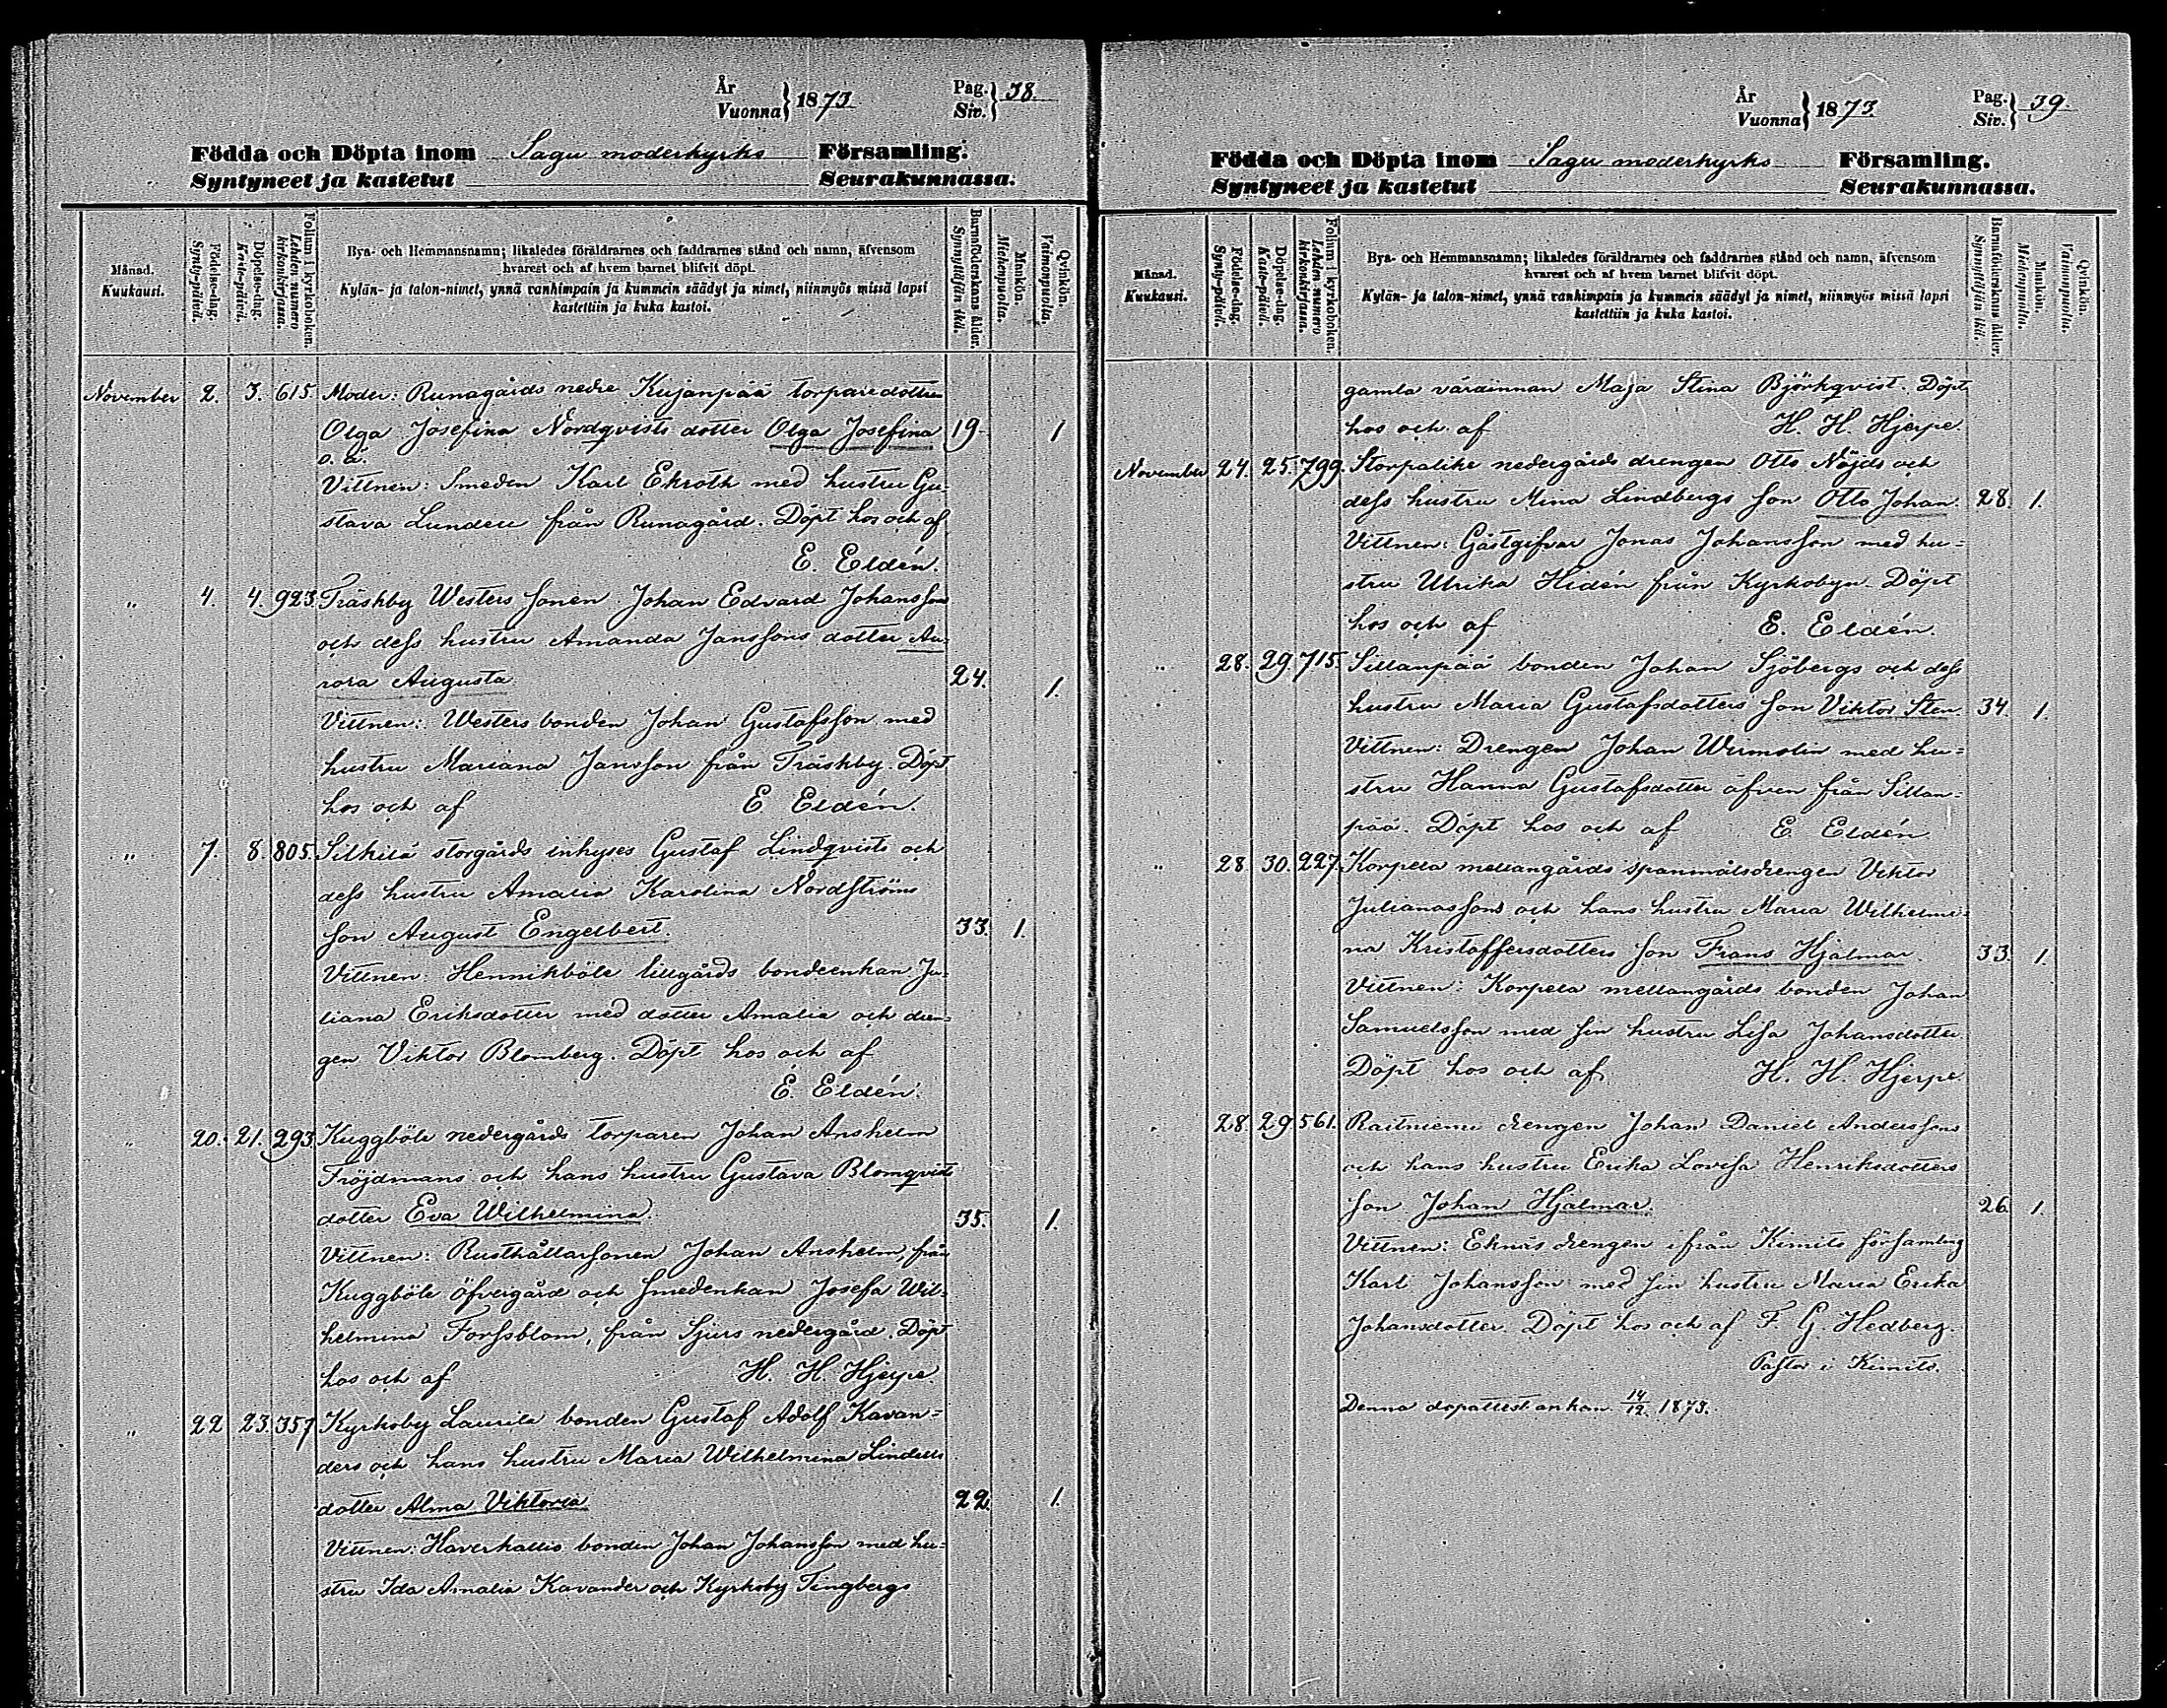 År
Vuonna } 1873
Pag.
Siv. } 38.
Födda och Döpta inom Sagu moderkyrks Församling.
Syntyneet ja kastetut Seurakunnassa.
Månad.
Kuukausi.
Födelse-dag.
Synty-päivä.
Döpelse-dag.
Kaste-päivä.
Folium i kyrkoboken.
Lehden numero kirkonkirjassa.
Bya- och Hemmansnamn; likaledes föräldrarnes och faddrarnes stånd och namn, äfvensom
hvarest och af hvem barnet blifvit döpt.
Kylän- ja talon-nimet, ynnä vanhimpain ja kummein säädyt ja nimet, niinmyös missä lapsi
kastettiin ja kuka kastoi.
Barnaföderskans ålder.
Synnyttäjän ikä.
Mankön.
Miehenpuolia.
Qvinkön.
Vaimonpuolia.
November 2. 3. 615. Moder: Runagårds nedre Kujanpää torparedottren
Olga Josefina Nordqvists dotter Olga Josefina 19 1
o. ä.
Vittnen: Smeden Karl Ekroth med hustru Gu-
stava Lundell från Runagård. Döpt hos och af
E. Eldén.
" 4. 4. 923. Träskby Westers sonen Johan Edvard Johansson
och dess hustru Amanda Janssons dotter Au-
rora Augusta 24. 1.
Vittnen: Westers bonden Johan Gustafsson med
hustru Mariana Jansson från Träskby. Döpt
hos och af E. Eldén.
" 7. 8. 805. Silkilä storgårds inhyses Gustaf Lindqvists och
dess hustru Amalia Karolina Nordströms
son August Engelbert. 33. 1.
Vittnen: Hennikböle lillgårds bondeenkan Ju-
liana Eriksdotter med dotter Amalia och dren-
gen Viktor Blomberg. Döpt hos och af
E. Eldén.
" 20. 21. 293. Kuggböle nedergårds torparen Johan Anshelm
Fröjdmans och hans hustru Gustava Blomqvists
dotter Eva Wilhelmina. 35. 1.
Vittnen: Rusthållarsonen Johan Anshelm, från
Kuggböle öfvergård och smedenkan Josefa Wil-
helmina Forssblom, från Sjurs nedergård. Döpt
hos och af H. H. Hjerpe.
" 22 23. 357 Kyrkoby Laurila bonden Gustaf Adolf Kavan-
ders och hans hustru Maria Wilhelmina Lindells
dotter Alma Viktoria 22. 1.
Vittnen: Haverkallio bonden Johan Johansson med hu-
stru Ida Amalia Kavander och Kyrkoby Tingbergs
År
Vuonna } 1873.
Pag.
Siv. } 39.
Födda och Döpta inom Sagu moderkyrks Församling.
Syntyneet ja kastetut Seurakunnassa.
Månad.
Kuukausi.
Födelse-dag.
Synty-päivä.
Döpelse-dag.
Kaste-päivä.
Folium i kyrkoboken.
Lehden numero kirkonkirjassa.
Bya- och Hemmansnamn; likaledes föräldrarnes och faddrarnes stånd och namn, äfvensom
hvarest och af hvem barnet blifvit döpt.
Kylän- ja talon-nimet, ynnä vanhimpain ja kummein säädyt ja nimet, niinmyös missä lapsi
kastettiin ja kuka kastoi.
Barnaföderskans ålder.
Synnyttäjän ikä.
Mankön.
Miehenpuolia.
Qvinkön.
Vaimonpuolia.
gamla värdinnan Maja Stina Björkqvist. Döpt
hos och af H. H. Hjerpe.
November 24. 25. 799. Storpalike nedergårds drengen Otto Nöjds och
dess hustru Mina Lindbergs son Otto Johan. 28. 1.
Vittnen: Gästgifvar Jonas Johansson med hu-
stru Ulrika Hidén från Kyrkobyn. Döpt
hos och af E. Eldén.
" 28. 29. 715. Sillanpää bonden Johan Sjöbergs och dess
hustru Maria Gustafsdotters son Viktor Sten. 34. 1.
Vittnen: Drengen Johan Wirmolin med hu-
stru Hanna Gustafsdotter äfven från Sillan-
pää. Döpt hos och af E. Eldén
" 28. 30. 227. Korpela mellangårds spanmålsdrengen Viktor
Julianassons och hans hustru Maria Wilhelmi-
na Kristoffersdotters son Frans Hjalmar. 33. 1.
Vittnen: Korpela mellangårds bonden Johan
Samuelsson med sin hustru Lisa Johansdotter.
Döpt hos och af H. H. Hjerpe.
" 28. 29. 561. Raitniemi drengen Johan Daniel Anderssons
och hans hustru Erika Lovisa Henriksdotters
son Johan Hjalmar. 26. 1.
Vittnen: Eknäs drengen ifrån Kimito församling
Karl Johansson med sin hustru Maria Erika
Johansdotter. Döpt hos och af F. G. Hedberg.
Pastor i Kimito.
Denna dopattest ankom 14/12. 1873.